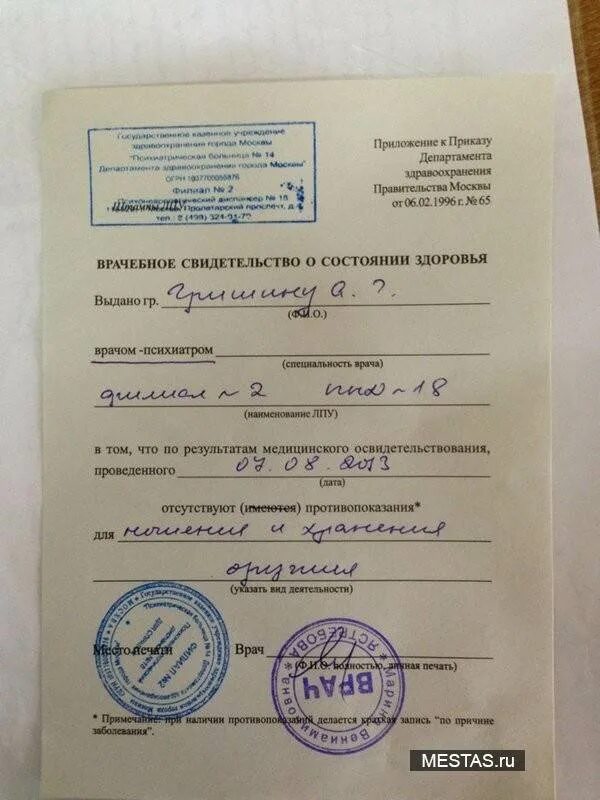 Государственное казенное учреждение
здравоохранения города Москвы
"Психиатрическая больница № 14
Департамента здравоохранения города Москвы"
Филиал № 2
Психоневрологический диспансер № 18
Пролетарский проспект, д.
Штамп ЛПУ
Приложение к Приказу
Департамента
здравоохранения
Правительства Москвы
от 06.02.1996 г. № 65
ВРАЧЕБНОЕ СВИДЕТЕЛЬСТВО О СОСТОЯНИИ ЗДОРОВЬЯ
Выдано гр. Гришину А. Г.
(Ф.И.О.)
врачом -психиатром
(специальность врача)
филиал № 2 ПНД № 18
(наименование ЛПУ)
в том, что по результатам медицинского освидетельствования,
проведенного 07.08.2013
(дата)
отсутствуют (имеются) противопоказания*
для ношения и хранения
оружия
(указать вид деятельности)
Место печати
Врач
(Ф.И.О. полностью, личная печать)
ФИЛИАЛ №2
ВРАЧ
ЯСТРЕБОВА
Вениаминовна
* Примечание: при наличии противопоказаний делается краткая запись “по причине
заболевания”.
MESTAS.ru